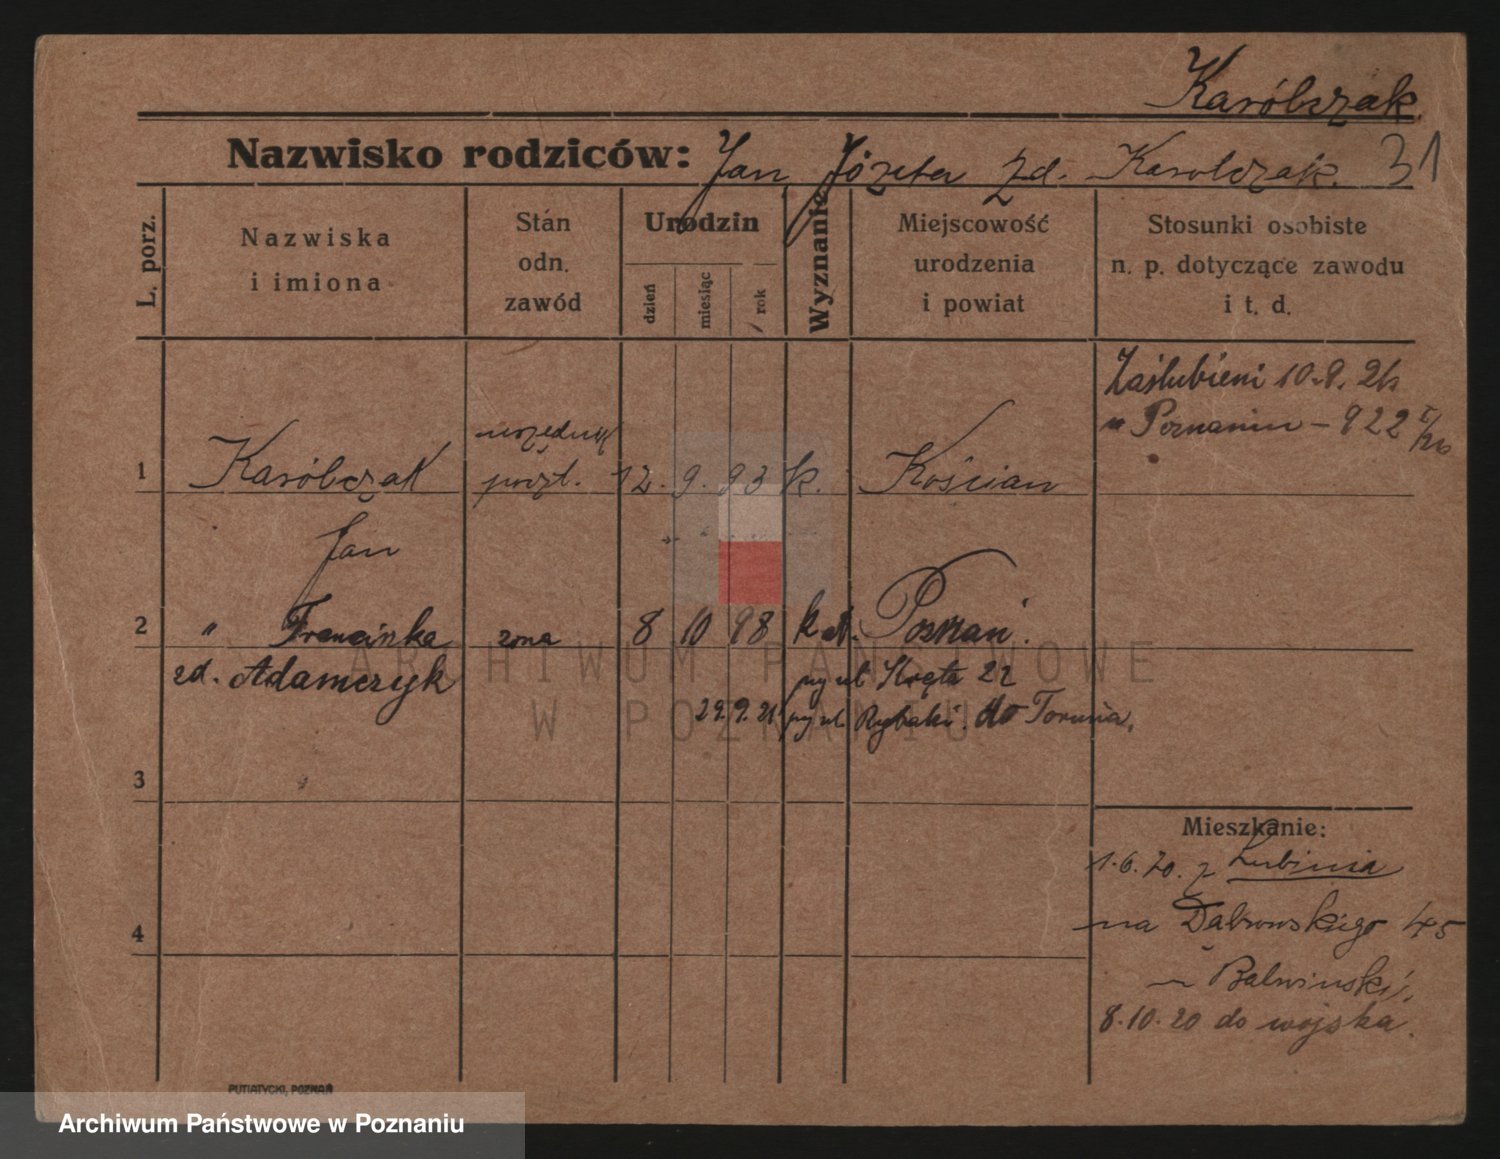 Karólczak
Nazwisko rodziców: Jan, Józefa zd. Karolczak. 31
L. porz.
Nazwiska
i imiona
Stan
odn.
zawód
Urodzin
dzień
miesiąc
rok
Wyznanie
Miejscowość
urodzenia
i powiat
Stosunki osobiste
n. p. dotyczące zawodu
i t. d.
Zaślubieni 10.9.
w Poznaniu - 922
1 Karólczak urzędnik poczt. 12. 9. 93 k. Kościan
Jan
2 " Franciszka żona 8 10 98 kat. Poznań.
zd. Adamczyk
przy ul. Kręta 22
29.9.21 przy ul. Rybaki. do Torunia.
3
4
Mieszkanie:
1.6.20. z Lubinia
na Dąbrowskiego 45
u Balwiński.
8.10.20 do wojska.
PUTIATYCKI, POZNAŃ
ARCHIWUM PAŃSTWOWE
W POZNANIU
Archiwum Państwowe w Poznaniu